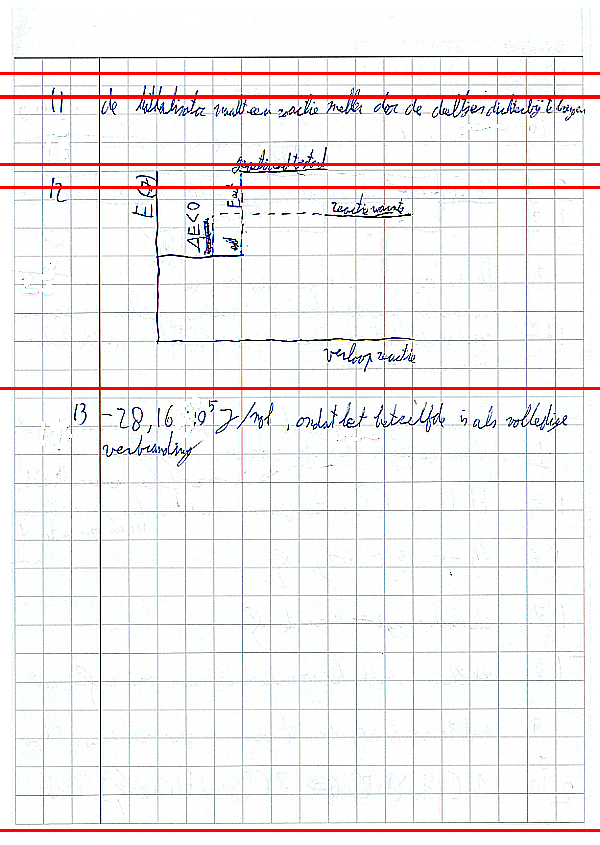 11 de katalisator maakt een reactie sneller door de deeltjes dichterbij te brengen
12
geactiveerde toestand
E (J)
ΔE<0
E act
reactiewarmte
verloop reactie
13 -28,16 · 10⁵ J/mol, omdat het hetzelfde is als volledige
verbranding